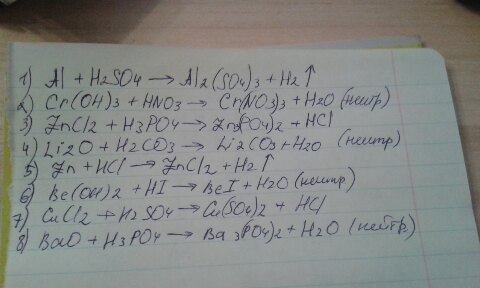 1) Al + H2SO4 → Al2(SO4)3 + H2↑
2) Cr(OH)3 + HNO3 → Cr(NO3)3 + H2O (нейтр)
3) ZnCl2 + H3PO4 → Zn3(PO4)2 + HCl
4) Li2O + H2CO3 → Li2CO3 + H2O (нейтр)
5) Zn + HCl → ZnCl2 + H2↑
6) Be(OH)2 + HI → BeI + H2O (нейтр)
7) CuCl2 + H2SO4 → Cu(SO4)2 + HCl
8) BaO + H3PO4 → Ba3(PO4)2 + H2O (нейтр)